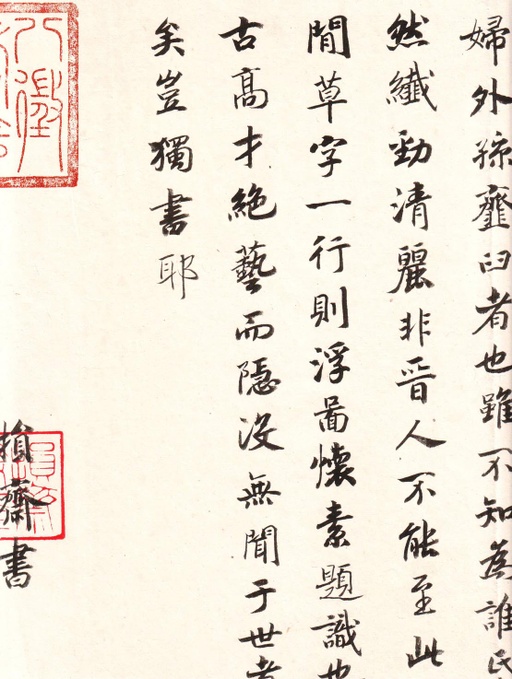 婦外孫齏臼者也雖不知為誰氏
然纖勁清麗非晉人不能至此
閒草字一行則浮啚懷素題識也
古高才絕藝而隱沒無聞于世者
矣豈獨書耶
損齋書